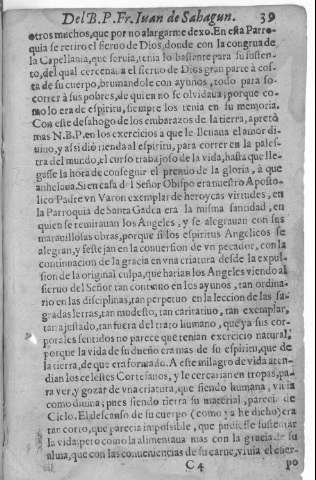 Del B. P. Fr. Iuan de Sahagun. 39
otros muchos, que por no alargarme dexo. En esta Parro-
quia se retiro el sieruo de Dios, donde con la congrua de
la Capellania, que seruia, tenia lo bastante para su susten-
to, del qual cercenaua el sieruo de Dios gran parte à cos-
ta de su cuerpo, brumandole con ayunos, todo para so-
correr à sus pobres, de quien no se oluidaua; porque co-
mo lo era de espiritu, siempre los tenia en su memoria.
Con este desahogo de los embarazos de la tierra, apretò
mas N. B. P. en los exercicios a que le lleuaua el amor di-
uino, y assi diò rienda al espiritu, para correr en la pales-
tra del mundo, el curso trabajoso de la vida, hasta que lle-
gasse la hora de conseguir el premio de la gloria, à que
anhelaua. Si en casa del Señor Obispo era nuestro Aposto-
lico Padre vn Varon exemplar de heroycas virtudes, en
la Parroquia de Santa Gadea era la misma santidad, en
quien se remirauan los Angeles, y se alegrauan con sus
marauillosas obras, porque si los espiritus Angelicos se
alegran, y festejan en la conuersion de vn pecador, con la
continuacion de la gracia en vna criatura desde la expul-
sion de la original culpa, que harian los Angeles viendo al
sieruo del Señor tan continuo en los ayunos, tan ordina-
rio en las disciplinas, tan perpetuo en la leccion de las sa-
gradas letras, tan modesto, tan caritatiuo, tan exemplar,
tan ajustado, tan fuera del trato humano, que ya sus cor-
porales sentidos no parece que tenian exercicio natural,
porque la vida de su dueño era mas de su espiritu, que de
la tierra, de que era formado. A este milagro de vida aten-
dian los celestes Cortesanos, y le cercarian en tropas, pa-
ra ver, y gozar de vna criatura, que siendo humana, viuia
como diuina; pues siendo tierra su material, parecia de
Cielo. El descanso de su cuerpo (como ya he dicho) era
tan corto, que parecia impossible, que pudiesse sustentar
la vida; pero como la alimentaua mas con la gracia de su
alma, que con las conueniencias de su carne, viuia el cuer-
C 4 po